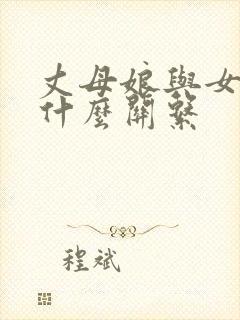 丈母娘與女
什麼關繫
程斌